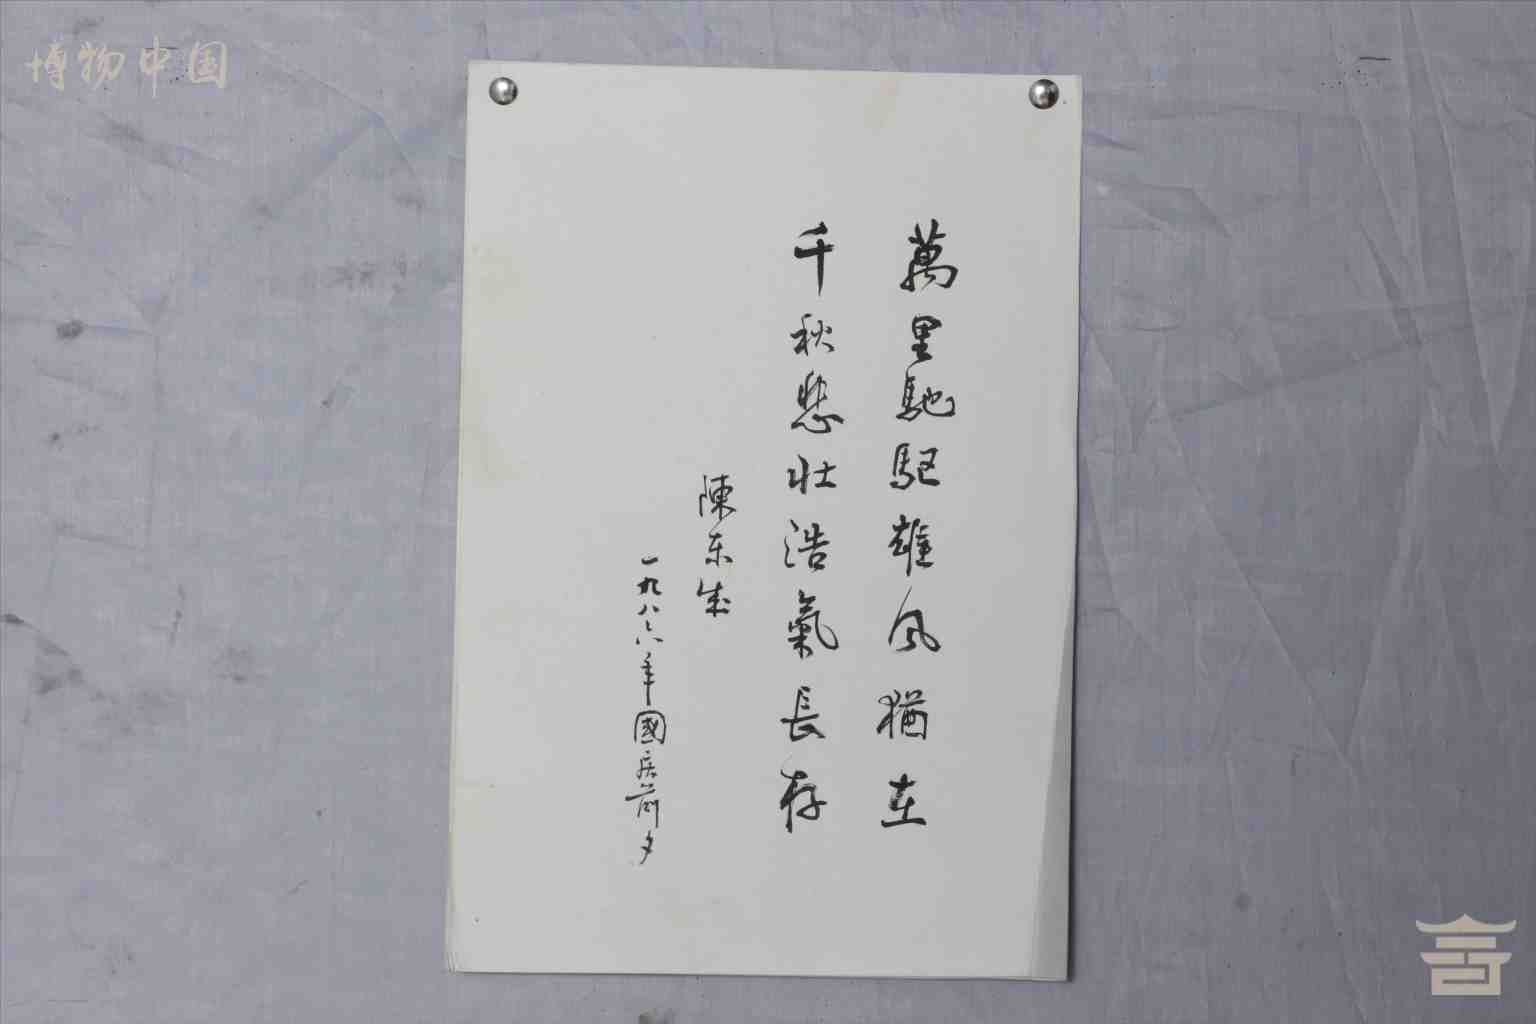 博物中国
萬里馳驱雄风猶在
千秋悲壮浩氣長存
陳东生
一九八六年國庆前夕